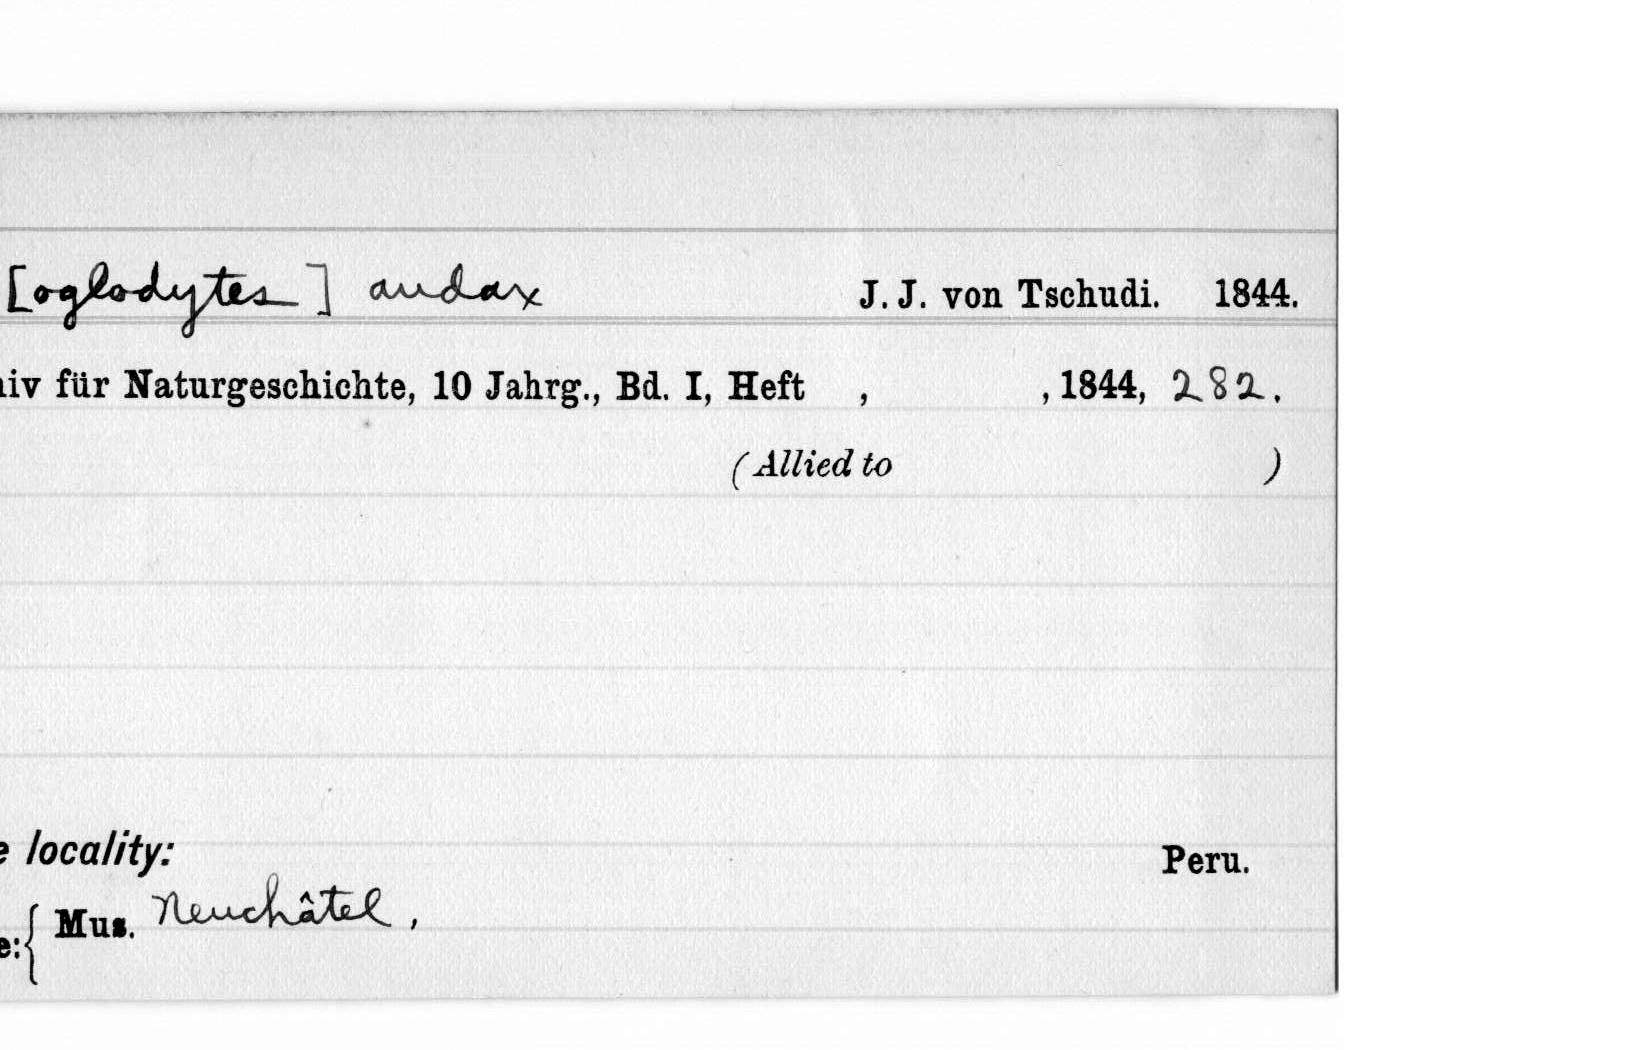 [oglodytes] audax J. J. von Tschudi. 1844.
iv für Naturgeschichte, 10 Jahrg., Bd. I, Heft , , 1844, 282.
(Allied to )
locality: Peru.
e:{ Mus. Neuchâtel,